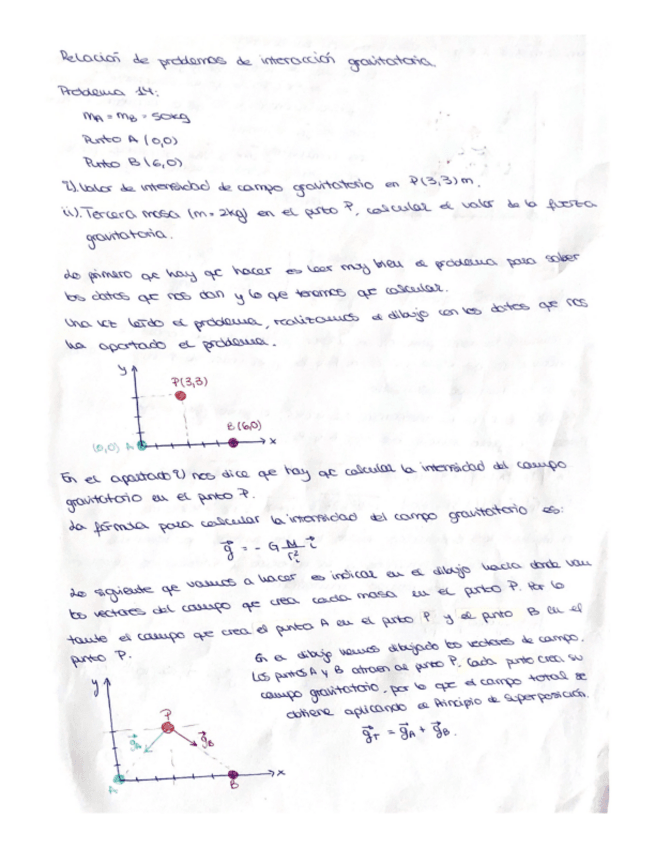 Relación de problemas de interacción gravitatoria.
Problema 14:
mA = mB = 50kg
Punto A (0,0)
Punto B (6,0)
i). Valor de intensidad de campo gravitatorio en P(3,3) m.
ii). Tercera masa (m = 2kg) en el punto P, calcular el valor de la fuerza
gravitatoria.
Lo primero que hay que hacer es leer muy bien el problema para saber
los datos que nos dan y lo que tenemos que calcular.
Una vez leído el problema, realizamos el dibujo con los datos que nos
ha aportado el problema.
y
P(3,3)
B (6,0)
(0,0) A
x
En el apartado i) nos dice que hay que calcular la intensidad del campo
gravitatorio en el punto P.
La fórmula para calcular la intensidad del campo gravitatorio es:
g⃗ = - G M/r² r⃗
Lo siguiente que vamos a hacer es indicar en el dibujo hacia donde van
los vectores del campo que crea cada masa en el punto P. Por lo
tanto el campo que crea el punto A en el punto P y el punto B en el
punto P.
En el dibujo vemos dibujado los vectores de campo.
Los puntos A y B atraen al punto P. Cada punto crea su
campo gravitatorio, por lo que el campo total se
obtiene aplicando el Principio de Superposición.
g⃗T = g⃗A + g⃗B.
y
P
g⃗A
g⃗B
A
B
x